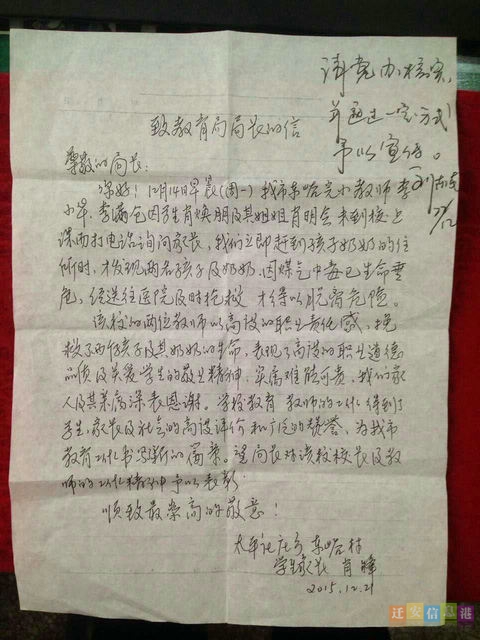 请党办核实，
并通过一定方式
予以宣传。
22/12
致教育局局长的信
尊敬的局长：
您好！12月14日早晨（周一）我市东哈完小教师李
小平、李满仓因学生肖焕朋及其姐姐肖明会未到校上
课而打电话询问家长，我们立即赶到孩子奶奶的住
所时，才发现两名孩子及奶奶，因煤气中毒已生命垂
危，经送往医院及时抢救才得以脱离危险。
该校的两位教师以高度的职业责任感，挽
救了两个孩子及其奶奶的生命，表现了高度的职业道德
品质及关爱学生的敬业精神，实属难能可贵，我们家
人及其亲属深表恩谢。学校教育教师的工作得到了
学生、家长及社会的高度评价和广泛的赞誉，为我市
教育工作书写新的篇章。望局长对该校校长及教
师的工作精神予以表彰
顺致最崇高的敬意！
太平庄乡东哈村
学生家长 肖峰
2015.12.21
迁安信息港